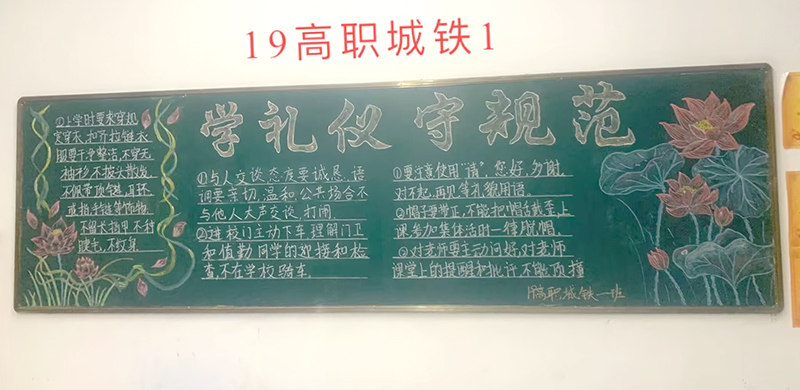 19高职城铁1
学礼仪 守规范
①上学时要求穿机
实穿木,扣齐拉链衣
服要干净整洁,不穿无
袖衫,不披头散发,
不佩带项链,耳环
或指链等饰物,
不留长指甲,不衬
睫毛,不纹身
①与人交谈态度要诚恳,语
调要亲切,温和,公共场合不
与他人大声交谈,打闹
②进校门主动下车,理解门卫
和值勤同学的迎接和检
查,不在学校骑车.
①要注意使用“请”,您好,多谢,
对不起,再见等礼貌用语
②帽子要带正,不能把帽舌戴歪,上
课参加集体活时一律脱帽,
③对老师要主动问好,对老师
课堂上的提醒和批评不能顶撞
19高职城铁一班